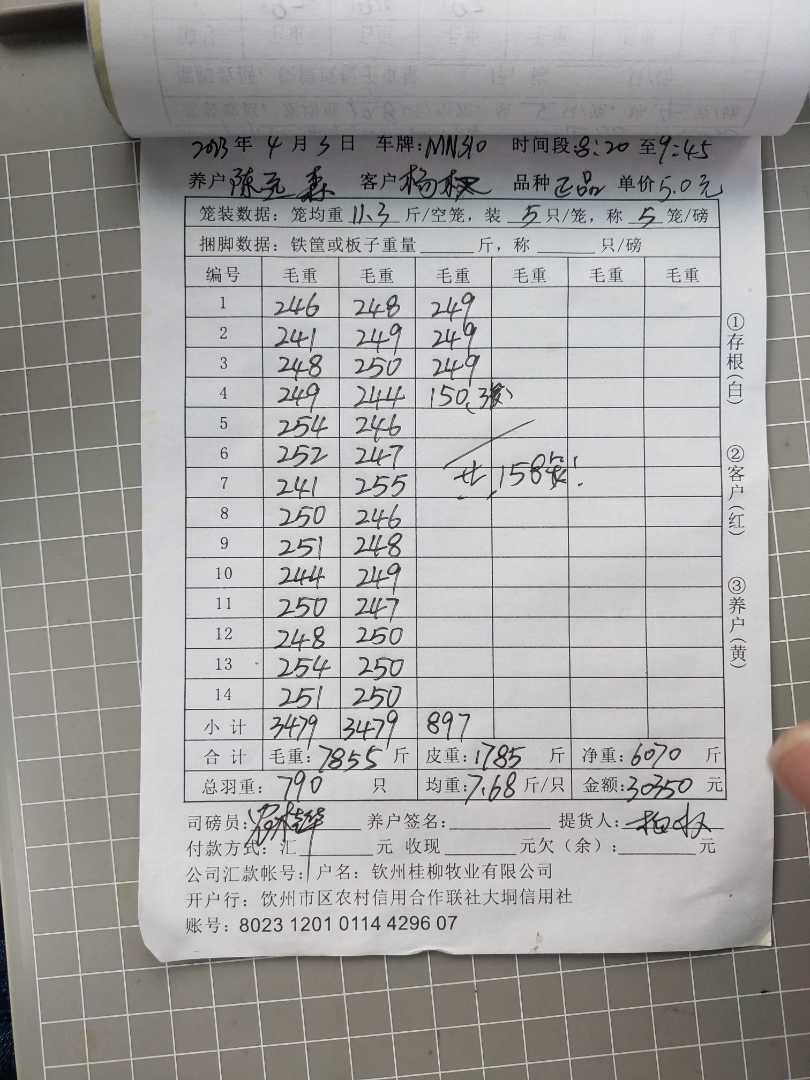 2023年 4 月 3 日 车牌:MN310 时间段:8:20 至9:45
养户 陈 森 客户 杨权 品种 正品 单价5.0元
笼装数据: 笼均重 11.3 斤/空笼, 装 5 只/笼, 称 5 笼/磅
捆脚数据: 铁筐或板子重量______斤, 称______只/磅
编号 毛重 毛重 毛重 毛重 毛重 毛重
1 246 248 249
2 241 249 249
3 248 250 249
4 249 244 150(3笼)
5 254 246
6 252 247
7 241 255 共158笼!
8 250 246
9 251 248
10 244 249
11 250 247
12 248 250
13 254 250
14 251 250
小 计 3479 3479 897
合 计 毛重:7855斤 皮重:1785 斤 净重:6070 斤
总羽重: 790 只 均重:7.68斤/只 金额:30350 元
司磅员: 养户签名:__________ 提货人:杨权
付款方式: 汇________元 收现________元欠(余):________元
公司汇款帐号: 户名: 钦州桂柳牧业有限公司
开户行: 饮州市区农村信用合作联社大垌信用社
账号: 8023 1201 0114 4296 07
①存根(白)
②客户(红)
③养户(黄)